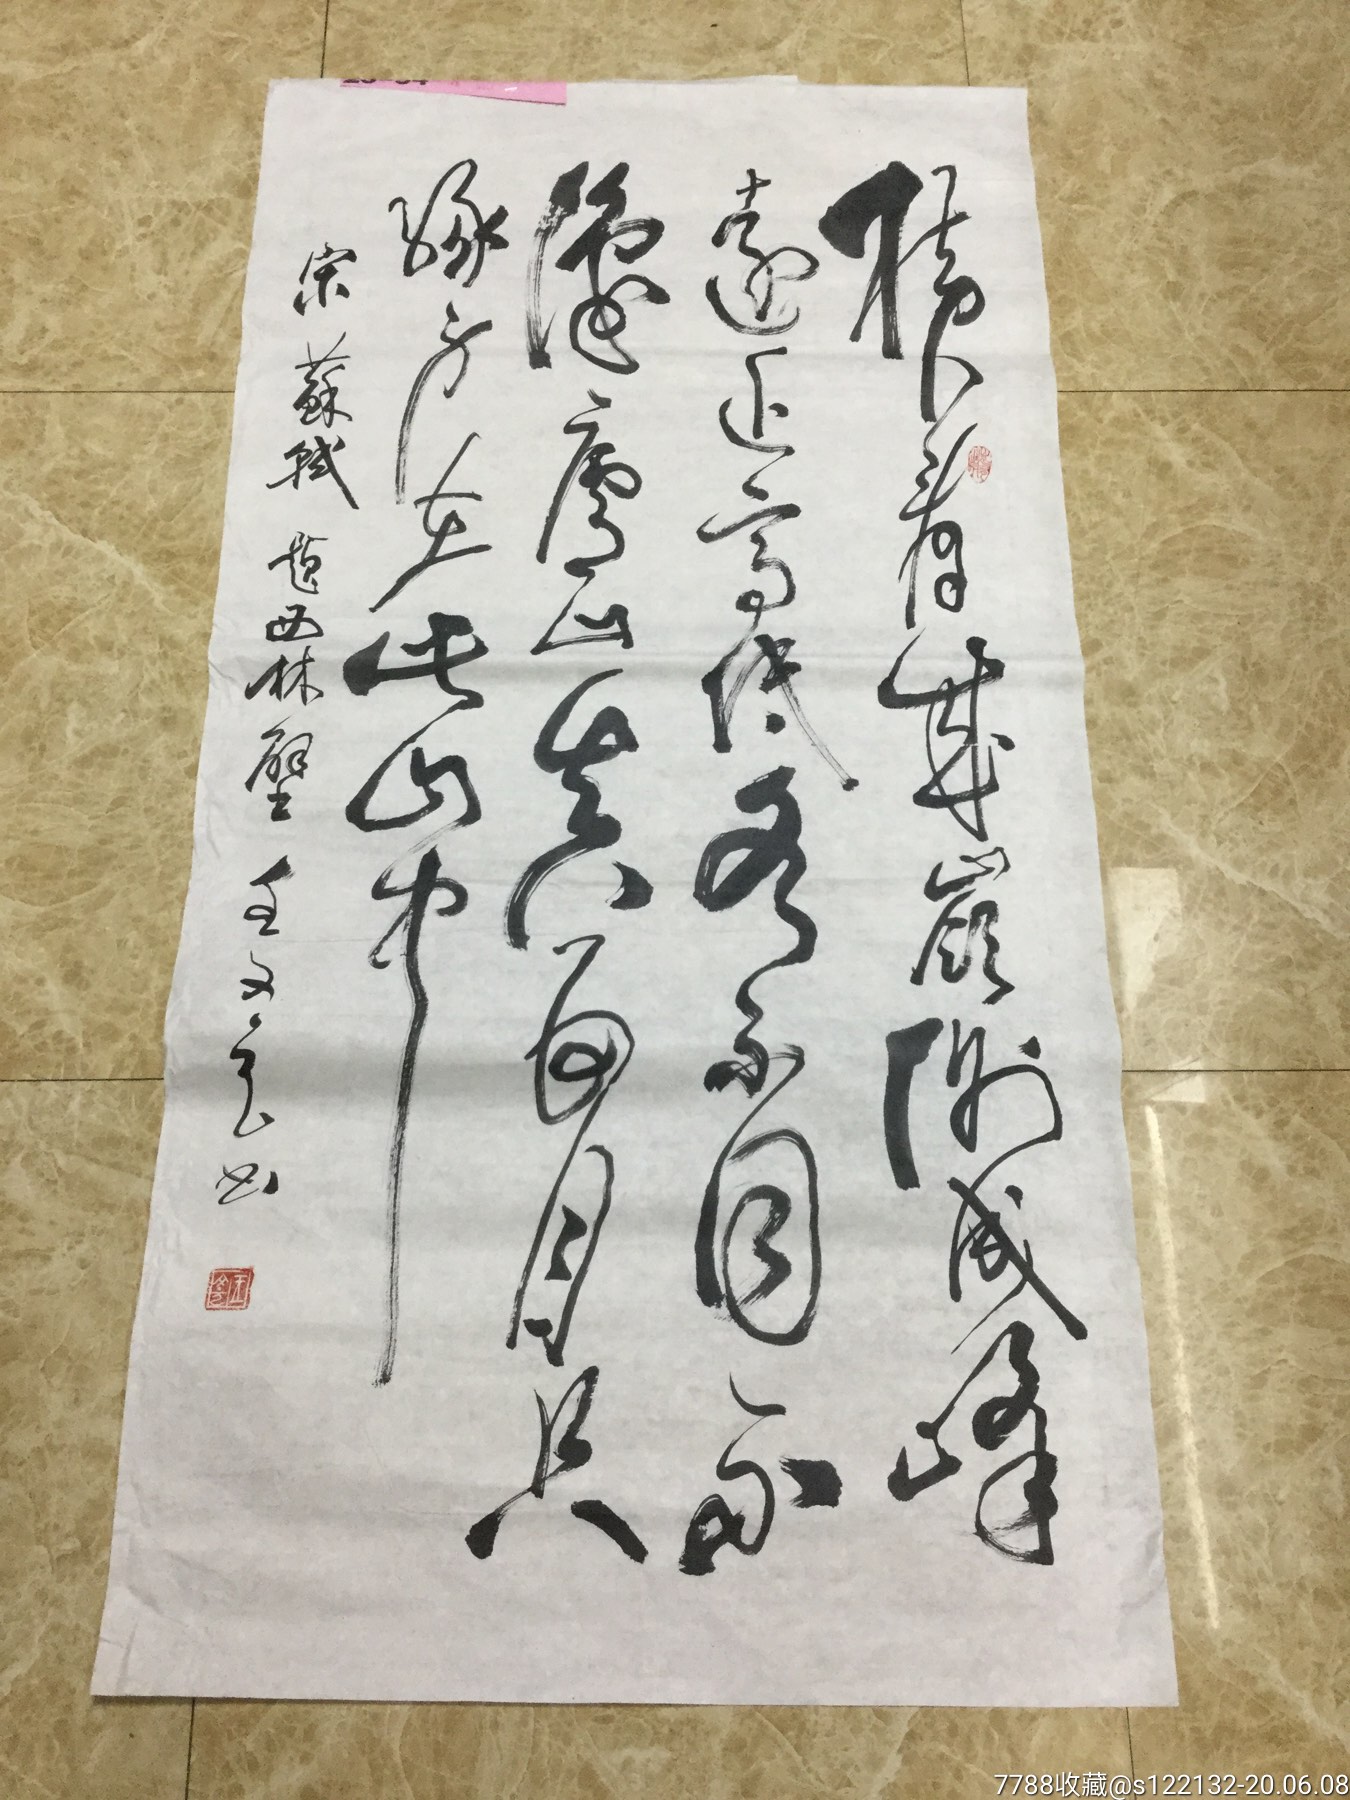 橫看成嶺側成峰
遠近高低各不同不
識廬山真面目只
緣身在此山中
宋 蘇軾 題西林壁 文 书
7788收藏@s122132-20.06.08